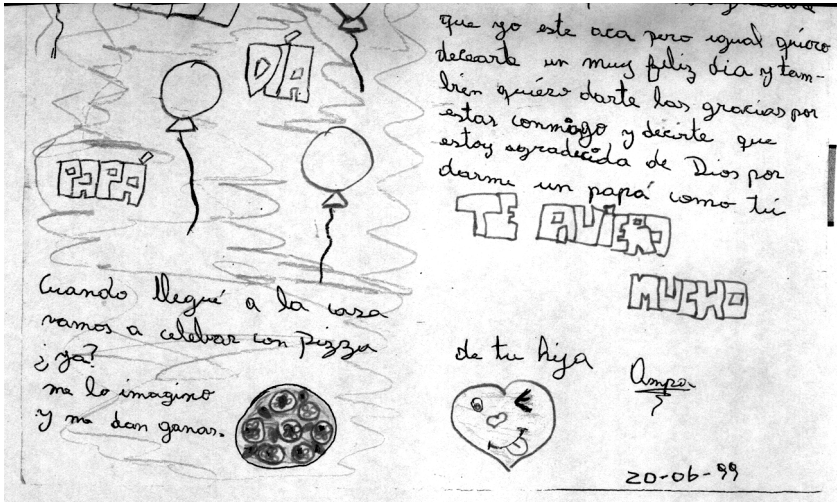 DÍA
PAPÁ
Cuando llegué a la casa
vamos a celebrar con pizza
¿ya?
me lo imagino
y me dan ganas.
que yo este aca pero igual quiero
decearte un muy feliz dia y tam-
bién quiero darte las gracias por
estas conmigo y decirte que
estoy agradecida de Dios por
darme un papá como tú
TE QUIERO
MUCHO
de tu hija
Ampa
20-06-99